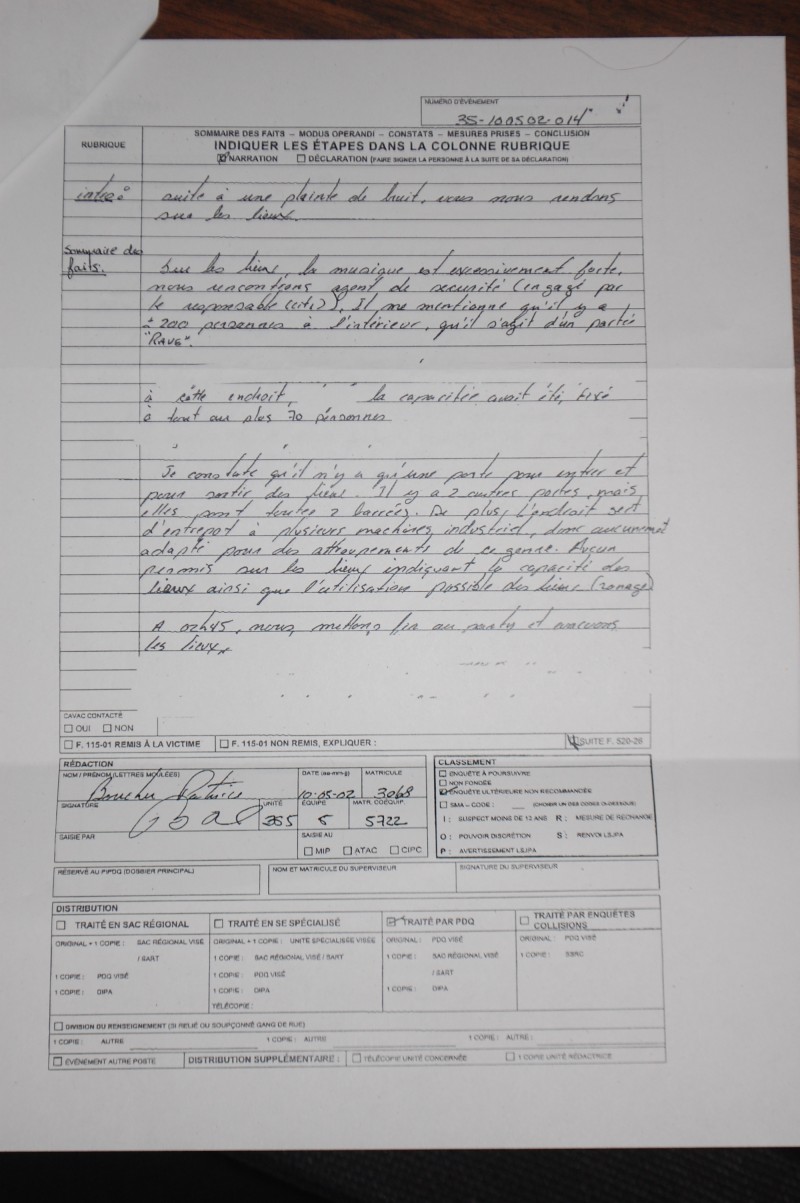 NUMÉRO D'ÉVÉNEMENT
35-100502-014
RUBRIQUE
SOMMAIRE DES FAITS – MODUS OPERANDI – CONSTATS – MESURES PRISES – CONCLUSION
INDIQUER LES ÉTAPES DANS LA COLONNE RUBRIQUE
NARRATION DÉCLARATION (FAIRE SIGNER LA PERSONNE À LA SUITE DE SA DÉCLARATION)
suite à une plainte de bruit, nous nous rendons
sur les lieux.
Sommaire des
faits.
Sur les lieux, la musique est excessivement forte,
nous rencontrons agent de securité (engagé par
le responsable (cité)). Il me mentionne qu'il y a
± 200 personnes à l'intérieur, qu'il s'agit d'un partée
"RAVE".
à cette endroit, la capacitée avait été fixé
à tout au plus 70 personnes
Je constate qu'il n'y a qu'une porte pour entrer et
pour sortir des lieux. Il y a 2 autres portes, mais
elles sont toutes 2 barrées. De plus, l'endroit sert
d'entrepot à plusieurs machines industriel, donc aucunement
adapté pour des attroupements de ce genre. Aucun
permis sur les lieux indiquant la capacité des
lieux ainsi que l'utilisation possible des lieux (zonage)
A 02h45, nous mettons fin au party et evacuons
les lieux.
CAVAC CONTACTÉ
OUI NON
F. 115-01 REMIS À LA VICTIME F. 115-01 NON REMIS, EXPLIQUER : SUITE F. 520-28
RÉDACTION
NOM / PRÉNOM (LETTRES MOULÉES) DATE (aa-mm-jj) MATRICULE
Boucher Patrice 10-05-02 3068
SIGNATURE UNITÉ ÉQUIPE MATR. COÉQUIP.
355 5 5722
SAISIE PAR SAISIE AU
MIP ATAC CIPC
CLASSEMENT
ENQUÊTE À POURSUIVRE
NON FONDÉE
ENQUÊTE ULTÉRIEURE NON RECOMMANDÉE
SMA – CODE : (CHOISIR UN DES CODES CI-DESSOUS)
I : SUSPECT MOINS DE 12 ANS R : MESURE DE RECHANGE
O : POUVOIR DISCRÉTION S : RENVOI LSJPA
P : AVERTISSEMENT LSJPA
RÉSERVÉ AU PIPDQ (DOSSIER PRINCIPAL) NOM ET MATRICULE DU SUPERVISEUR SIGNATURE DU SUPERVISEUR
DISTRIBUTION
TRAITÉ EN SAC RÉGIONAL TRAITÉ EN SE SPÉCIALISÉ TRAITÉ PAR PDQ TRAITÉ PAR ENQUÊTES COLLISIONS
ORIGINAL + 1 COPIE : SAC RÉGIONAL VISÉ ORIGINAL + 1 COPIE : UNITÉ SPÉCIALISÉE VISÉE ORIGINAL : PDQ VISÉ ORIGINAL : PDQ VISÉ
/ SART 1 COPIE : SAC RÉGIONAL VISÉ / SART 1 COPIE : SAC RÉGIONAL VISÉ 1 COPIE :
1 COPIE : PDQ VISÉ 1 COPIE : PDQ VISÉ / SART
1 COPIE : DIPA 1 COPIE : DIPA 1 COPIE : DIPA
TÉLÉCOPIE :
DIVISION DU RENSEIGNEMENT (SI RELIÉ OU SOUPÇONNÉ GANG DE RUE)
1 COPIE : AUTRE 1 COPIE : AUTRE 1 COPIE : AUTRE :
ÉVÉNEMENT AUTRE POSTE DISTRIBUTION SUPPLÉMENTAIRE : TÉLÉCOPIE UNITÉ CONCERNÉE 1 COPIE UNITÉ RÉDACTRICE